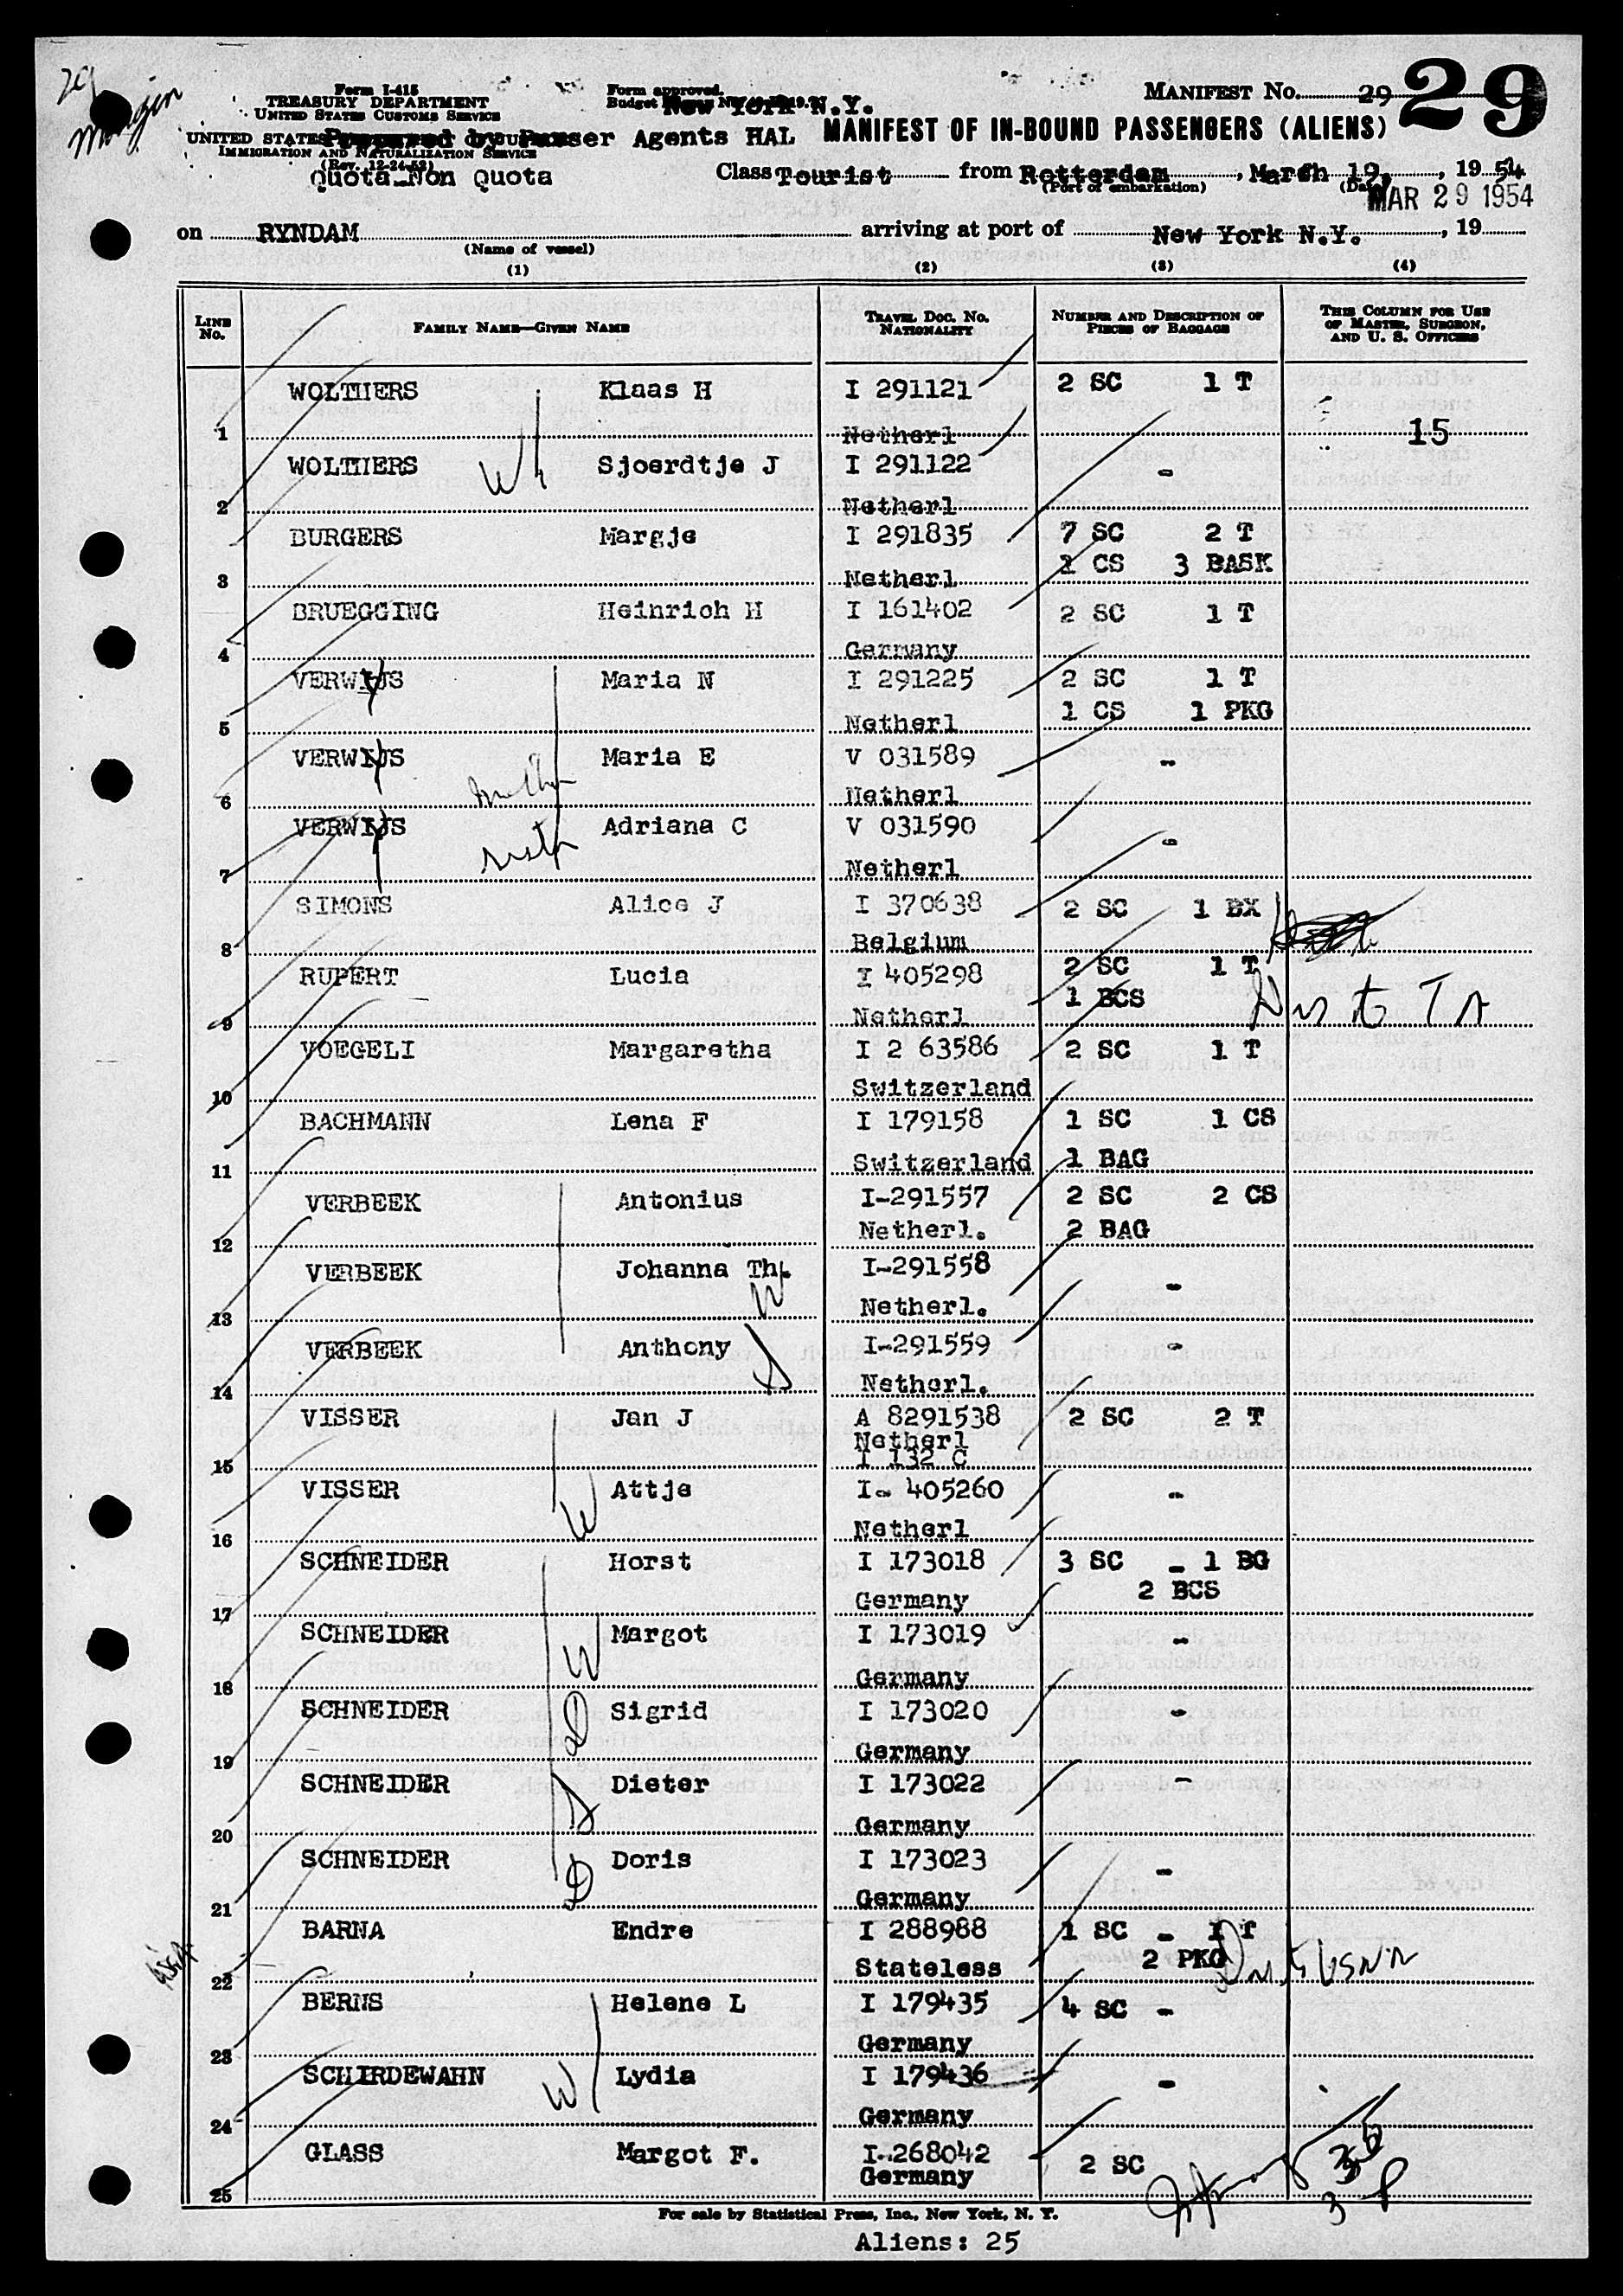 29
Form I-415
TREASURY DEPARTMENT
UNITED STATES CUSTOMS SERVICE
UNITED STATES
IMMIGRATION AND NATURALIZATION SERVICE
(Rev. 12-24-52)
Form approved.
Budget
New York N.Y.
Prepared by Purser Agents HAL
MANIFEST NO. 29
29
MANIFEST OF IN-BOUND PASSENGERS (ALIENS)
Quota-Non Quota
Class Tourist from Rotterdam, March 19, 1954
(Port of embarkation) (Date)
MAR 29 1954
on RYNDAM arriving at port of New York N.Y., 19
(Name of vessel)
(1) (2) (3) (4)
LINE NO. FAMILY NAME—GIVEN NAME TRAVEL DOC. NO. NATIONALITY NUMBER AND DESCRIPTION OF PIECES OF BAGGAGE THIS COLUMN FOR USE OF MASTER, SURGEON, AND U. S. OFFICERS
WOLTHERS Klaas H I 291121 2 SC 1 T
1 Netherl 15
WOLTHERS W Sjoerdtje J I 291122 -
2 Netherl
BURGERS Margje I 291835 7 SC 2 T
1 CS 3 BASK
3 Netherl
BRUEGGING Heinrich H I 161402 2 SC 1 T
4 Germany
VERWIJS Maria N I 291225 2 SC 1 T
1 CS 1 PKG
5 Netherl
VERWIJS Maria E V 031589 -
mother
6 Netherl
VERWIJS Adriana C V 031590 -
sister
7 Netherl
SIMONS Alice J I 370638 2 SC 1 BX
8 Belgium
RUPERT Lucia I 405298 2 SC 1 T
1 BCS
9 Netherl
VOEGELI Margaretha I 2 63586 2 SC 1 T
10 Switzerland
BACHMANN Lena F I 179158 1 SC 1 CS
11 Switzerland 1 BAG
VERBEEK Antonius I-291557 2 SC 2 CS
12 Netherl. 2 BAG
VERBEEK Johanna Th. W I-291558 -
13 Netherl.
VERBEEK Anthony S I-291559 -
14 Netherl.
VISSER Jan J A 8291538 2 SC 2 T
Netherl
15 I 132 C
VISSER W Attje I- 405260 -
16 Netherl
SCHNEIDER Horst I 173018 3 SC - 1 BG
2 BCS
17 Germany
SCHNEIDER W Margot I 173019 -
18 Germany
SCHNEIDER D Sigrid I 173020 -
19 Germany
SCHNEIDER S Dieter I 173022 -
20 Germany
SCHNEIDER D Doris I 173023 -
21 Germany
BARNA Endre I 288988 1 SC - 1 T
2 PKG
22 Stateless
BERNS Helene L I 179435 4 SC -
23 Germany
SCHIRDEWAHN W Lydia I 179436 -
24 Germany
GLASS Margot F. I-268042 2 SC
25 Germany
For sale by Statistical Press, Inc., New York, N. Y.
Aliens: 25